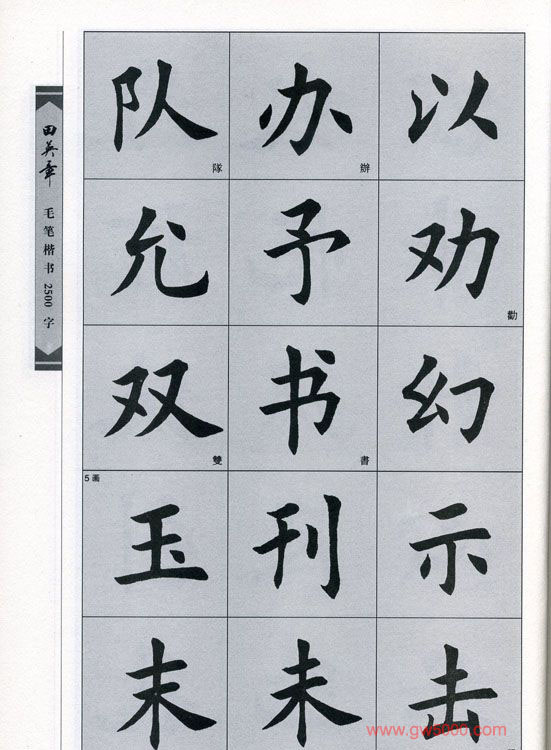 田英章
毛笔楷书 2500 字
队 隊 办 辦 以
允 予 劝 勸
双 雙 书 書 幻
5 画
玉 刊 示
末 未 击
www.gw5000.com